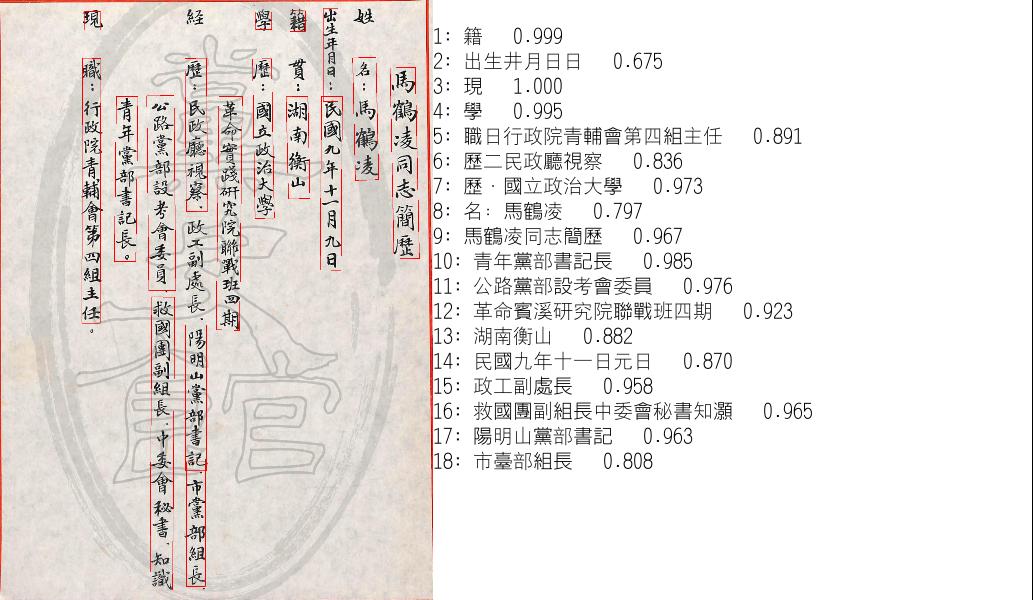 馬鶴凌同志簡歷
姓名：馬鶴凌
出生年月日：民國九年十一月九日
籍貫：湖南衡山
學歷：國立政治大學
革命實踐研究院聯戰班四期
経歷：民政廳視察、政工副處長、陽明山黨部書記、市黨部組長、
公路黨部設考會委員、救國團副組長、中委會秘書、知識
青年黨部書記長。
現職：行政院青輔會第四組主任。
1: 籍 0.999
2: 出生井月日日 0.675
3: 現 1.000
4: 學 0.995
5: 職日行政院青輔會第四組主任 0.891
6: 歷二民政廳視察 0.836
7: 歷·國立政治大學 0.973
8: 名: 馬鶴凌 0.797
9: 馬鶴凌同志簡歷 0.967
10: 青年黨部書記長 0.985
11: 公路黨部設考會委員 0.976
12: 革命賓溪研究院聯戰班四期 0.923
13: 湖南衡山 0.882
14: 民國九年十一日元日 0.870
15: 政工副處長 0.958
16: 救國團副組長中委會秘書知灝 0.965
17: 陽明山黨部書記 0.963
18: 市臺部組長 0.808